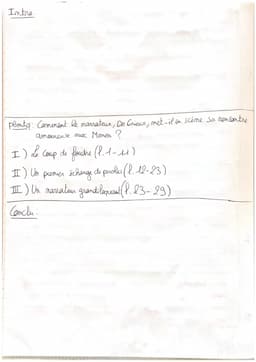 Intro
pbmtq: Comment le narrateur, Des Grieux, met-il en scène sa rencontre
amoureuse avec Manon ?
I) Le coup de foudre (l.1-11)
II) Un premier échange de paroles (l.12-23)
III) Un narrateur grandiloquent (l.23-29)
Conclu.